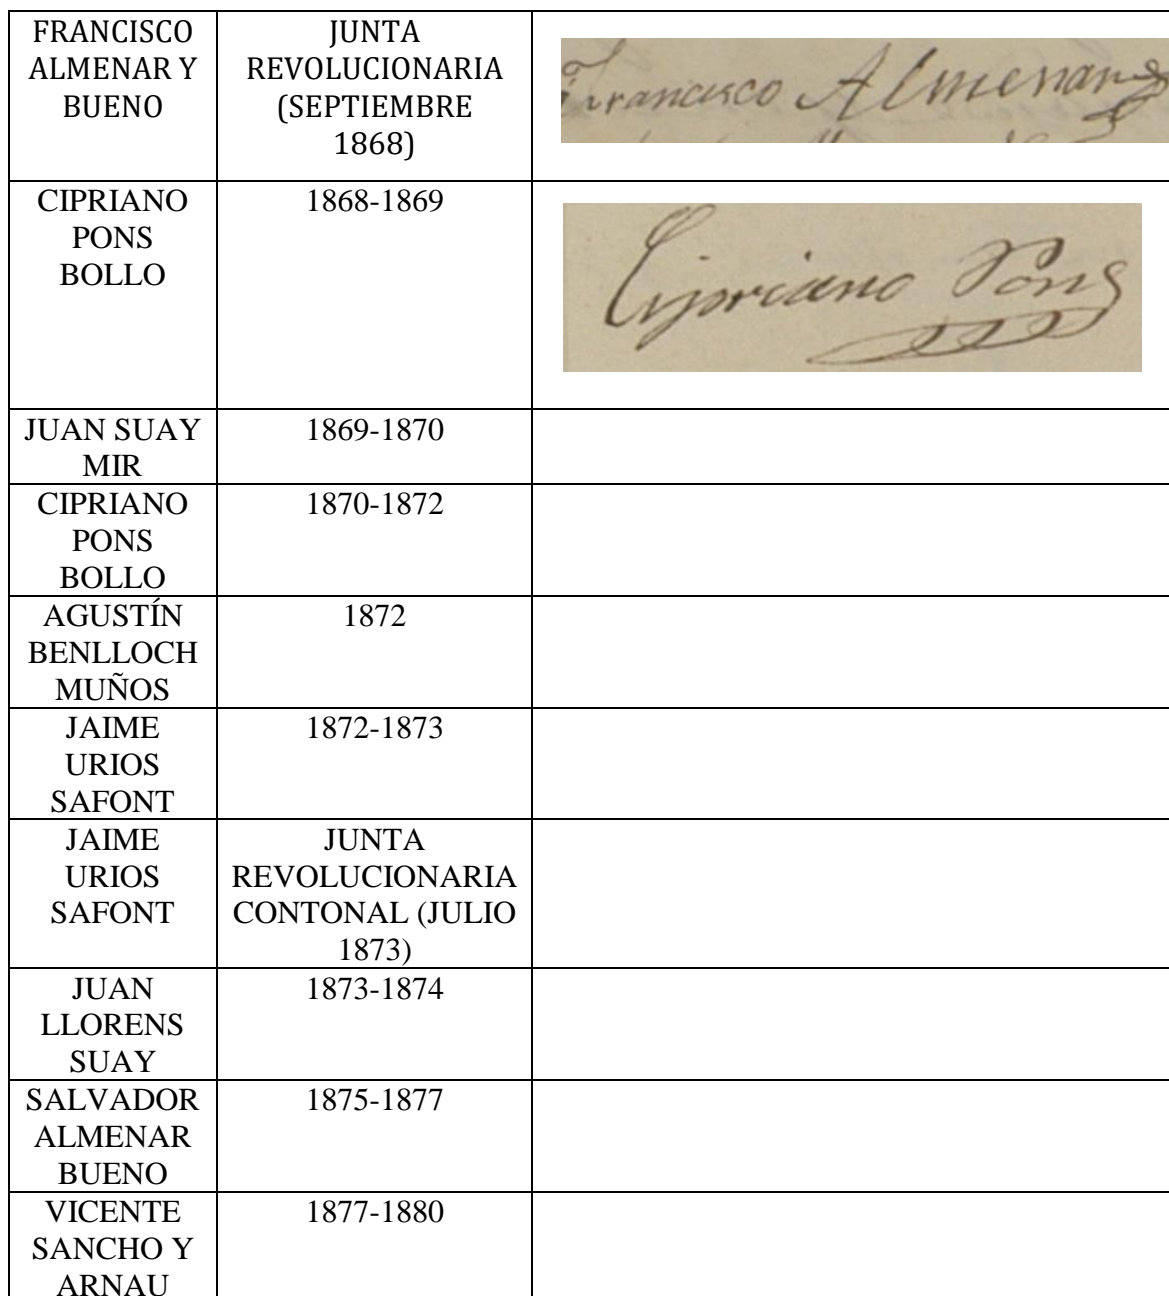 FRANCISCO
ALMENAR Y
BUENO
JUNTA
REVOLUCIONARIA
(SEPTIEMBRE
1868)
Francisco Almenar
CIPRIANO
PONS
BOLLO
1868-1869
Cipriano Pons
JUAN SUAY
MIR
1869-1870
CIPRIANO
PONS
BOLLO
1870-1872
AGUSTÍN
BENLLOCH
MUÑOS
1872
JAIME
URIOS
SAFONT
1872-1873
JAIME
URIOS
SAFONT
JUNTA
REVOLUCIONARIA
CONTONAL (JULIO
1873)
JUAN
LLORENS
SUAY
1873-1874
SALVADOR
ALMENAR
BUENO
1875-1877
VICENTE
SANCHO Y
ARNAU
1877-1880